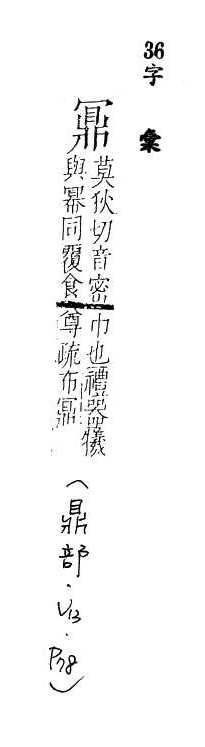 36字彙
鼏莫狄切音密巾也禮器犧
與冪同覆食尊疏布鼏
(鼎部.V13.P78)